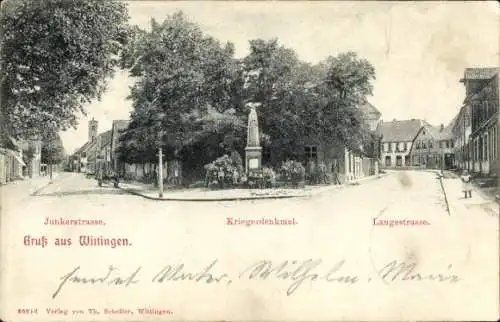 Junkerstrasse.
Kriegerdenkmal.
Langestrasse.
Gruß aus Wittingen.
sendet Vater, Wilhelm, Marie
Verlag von Th. Scheller, Wittingen.